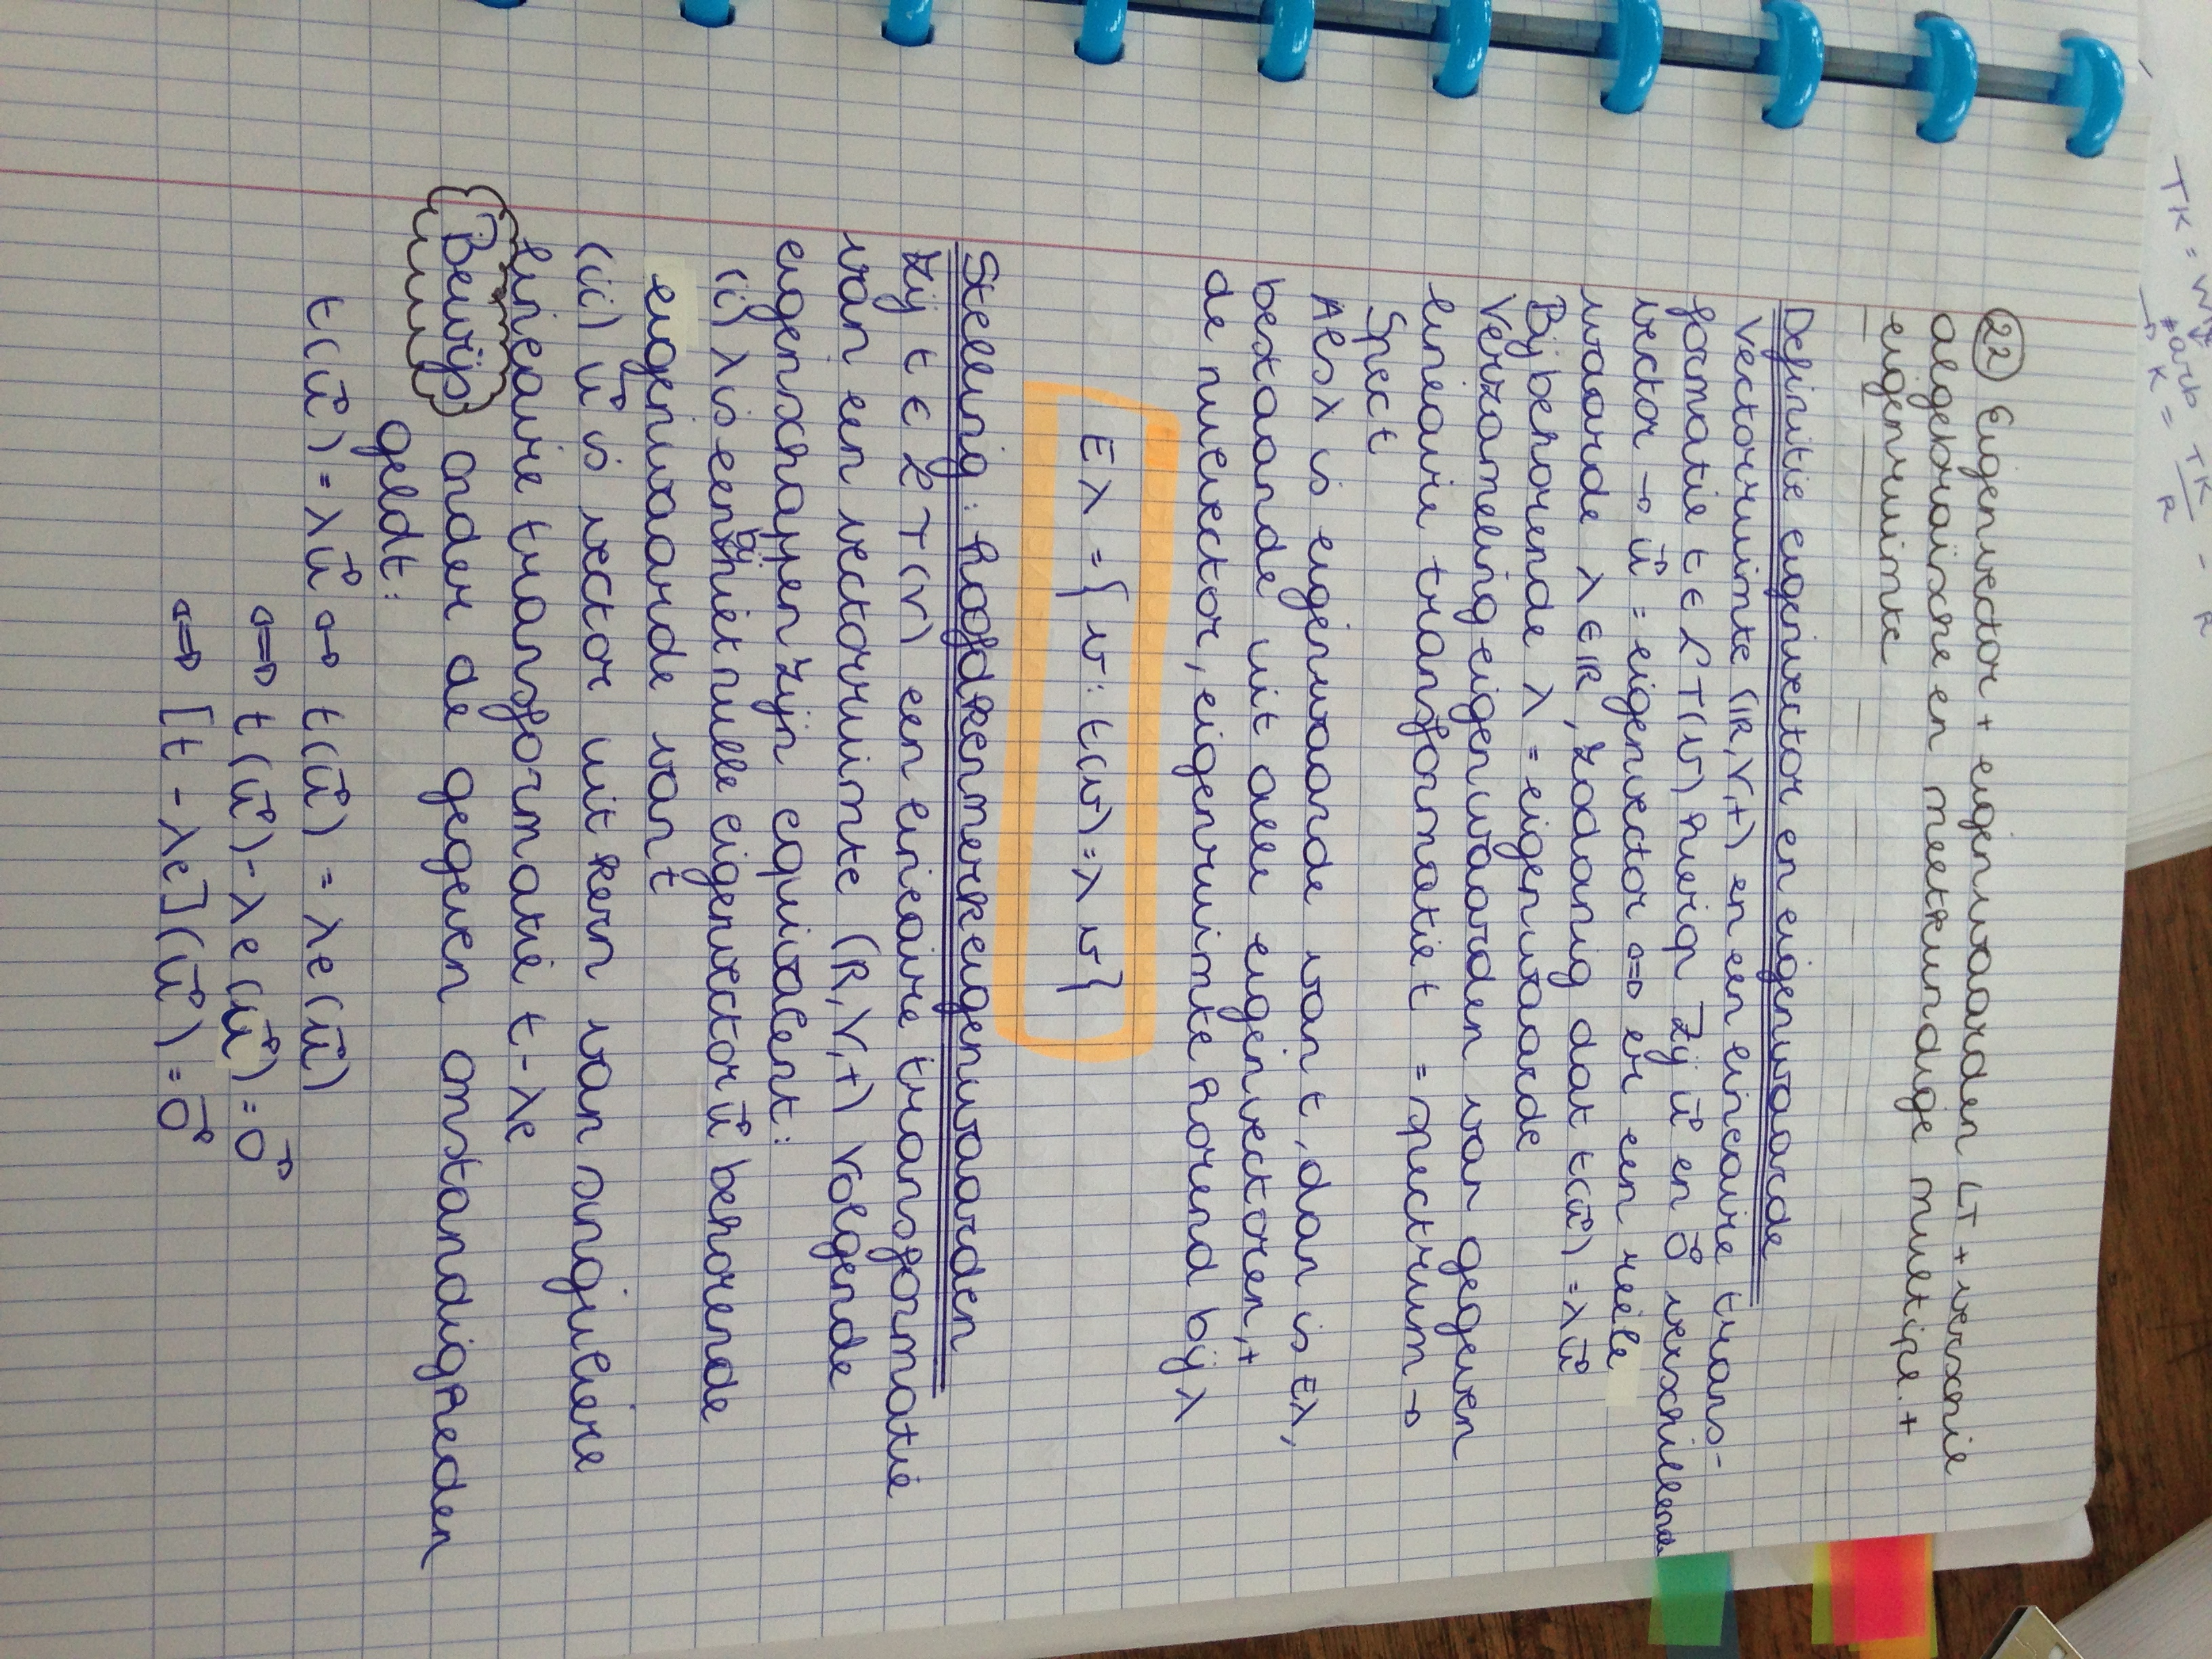 TK = W
* arb
→ K = TK
R
- R
㉒ Eigenvector + eigenwaarden LT + verschil
algebraïsche en meetkundige multipl. +
eigenruimte
Definitie eigenvector en eigenwaarde
Vectorruimte (ℝ,V,+) en een lineaire trans-
formatie t ∈ LT(V) hierop zij u⃗ en o⃗ verschillende
vector → u⃗ = eigenvector ⇔ er een reële
waarde λ ∈ ℝ, zodanig dat t(u⃗) = λu⃗
Bijbehorende λ = eigenwaarde
Verzameling eigenwaarden van gegeven
lineaire transformatie t = spectrum →
Spect
Als λ is eigenwaarde van t, dan is Eλ,
bestaande uit alle eigenvectoren, +
de nulvector, eigenruimte horend bij λ
Eλ = { v : t(v) = λ v }
Stelling: hoofdkenmerk eigenwaarden
Zij t ∈ LT(V) een lineaire transformatie
van een vectorruimte (R,V,+) Volgende
eigenschappen zijn equivalent:
(i) λ is een bij niet nulle eigenvector u⃗ behorende
eigenwaarde van t
(ii) u⃗ is vector uit kern van singuliere
lineaire transformatie t - λe
Bewijs onder de gegeven omstandigheden
geldt:
t(u⃗) = λu⃗ ⇔ t(u⃗) = λe(u⃗)
⇔ t(u⃗) - λe(u⃗) = o⃗
⇔ [t - λe](u⃗) = o⃗